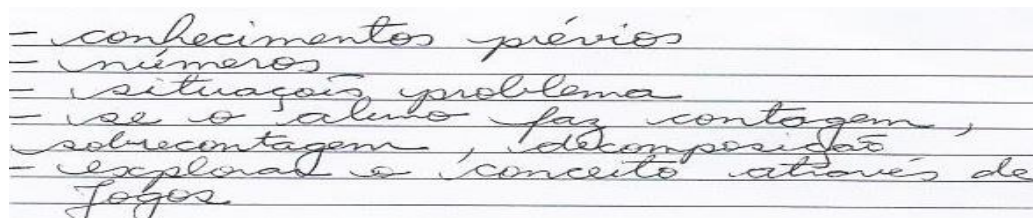 - conhecimentos prévios
- números
- situaçois problema
- se o aluno faz contagem,
sobrecontagem, decomposição
- explorar o conceito através de
Jogos